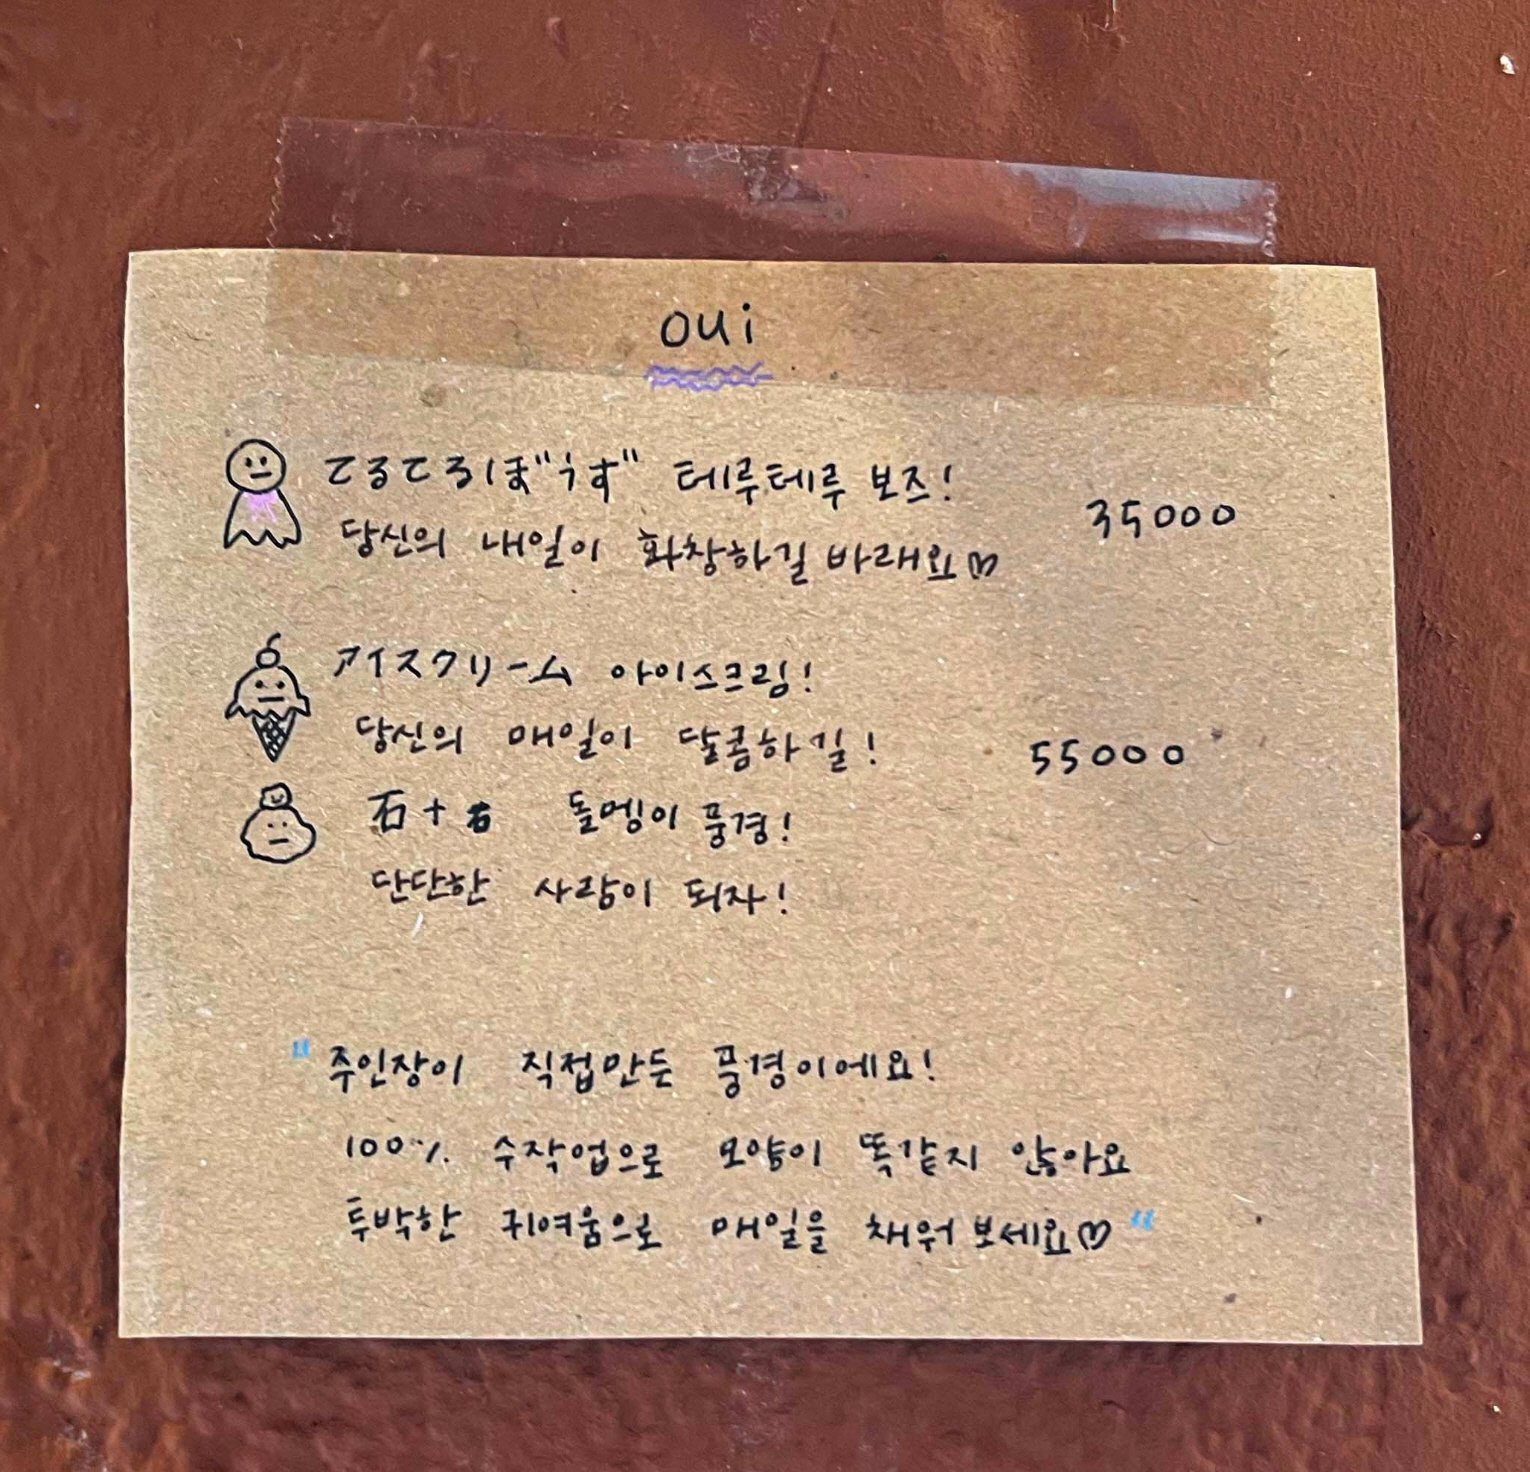 oui
てるてるぼ"うず" 테루테루 보즈! 35000
당신의 내일이 화창하길 바래요♡
アイスクリーム 아이스크림!
당신의 매일이 달콤하길! 55000
石+石 돌멩이 풍경!
단단한 사람이 되자!
"주인장이 직접만든 풍경이에요!
100% 수작업으로 모양이 똑같지 않아요
투박한 귀여움으로 매일을 채워보세요♡"